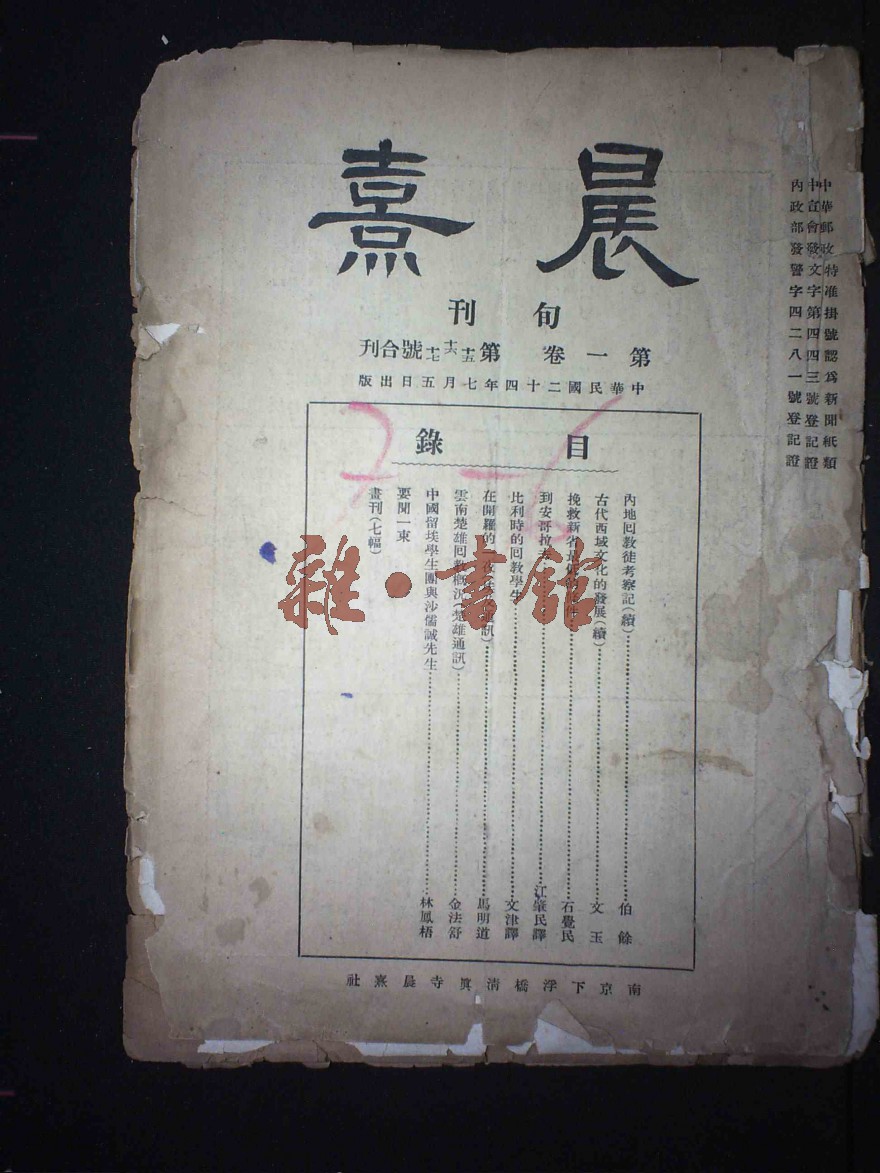 中華郵政特准掛號認爲新聞紙類
中宣會發文字第四四三號登記證
內政部發警字四二八一號登記證
晨熹
旬刊
第一卷 第十五十六十七號合刊
中華民國二十四年七月五日出版
目錄
內地回教徒考察記(續)⋯⋯伯餘
古代西域文化的發展(續)⋯⋯文玉
挽救新省⋯⋯石覺民
到安哥拉去⋯⋯江肇民譯
比利時的回教學生⋯⋯文津譯
在開羅的一夜⋯⋯馬明道
雲南楚雄回教概況(楚雄通訊)⋯⋯金法舒
中國留埃學生團與沙儒誠先生⋯⋯林鳳梧
要聞一束
畫刊(七幅)
南京下浮橋清眞寺晨熹社
雜·書館